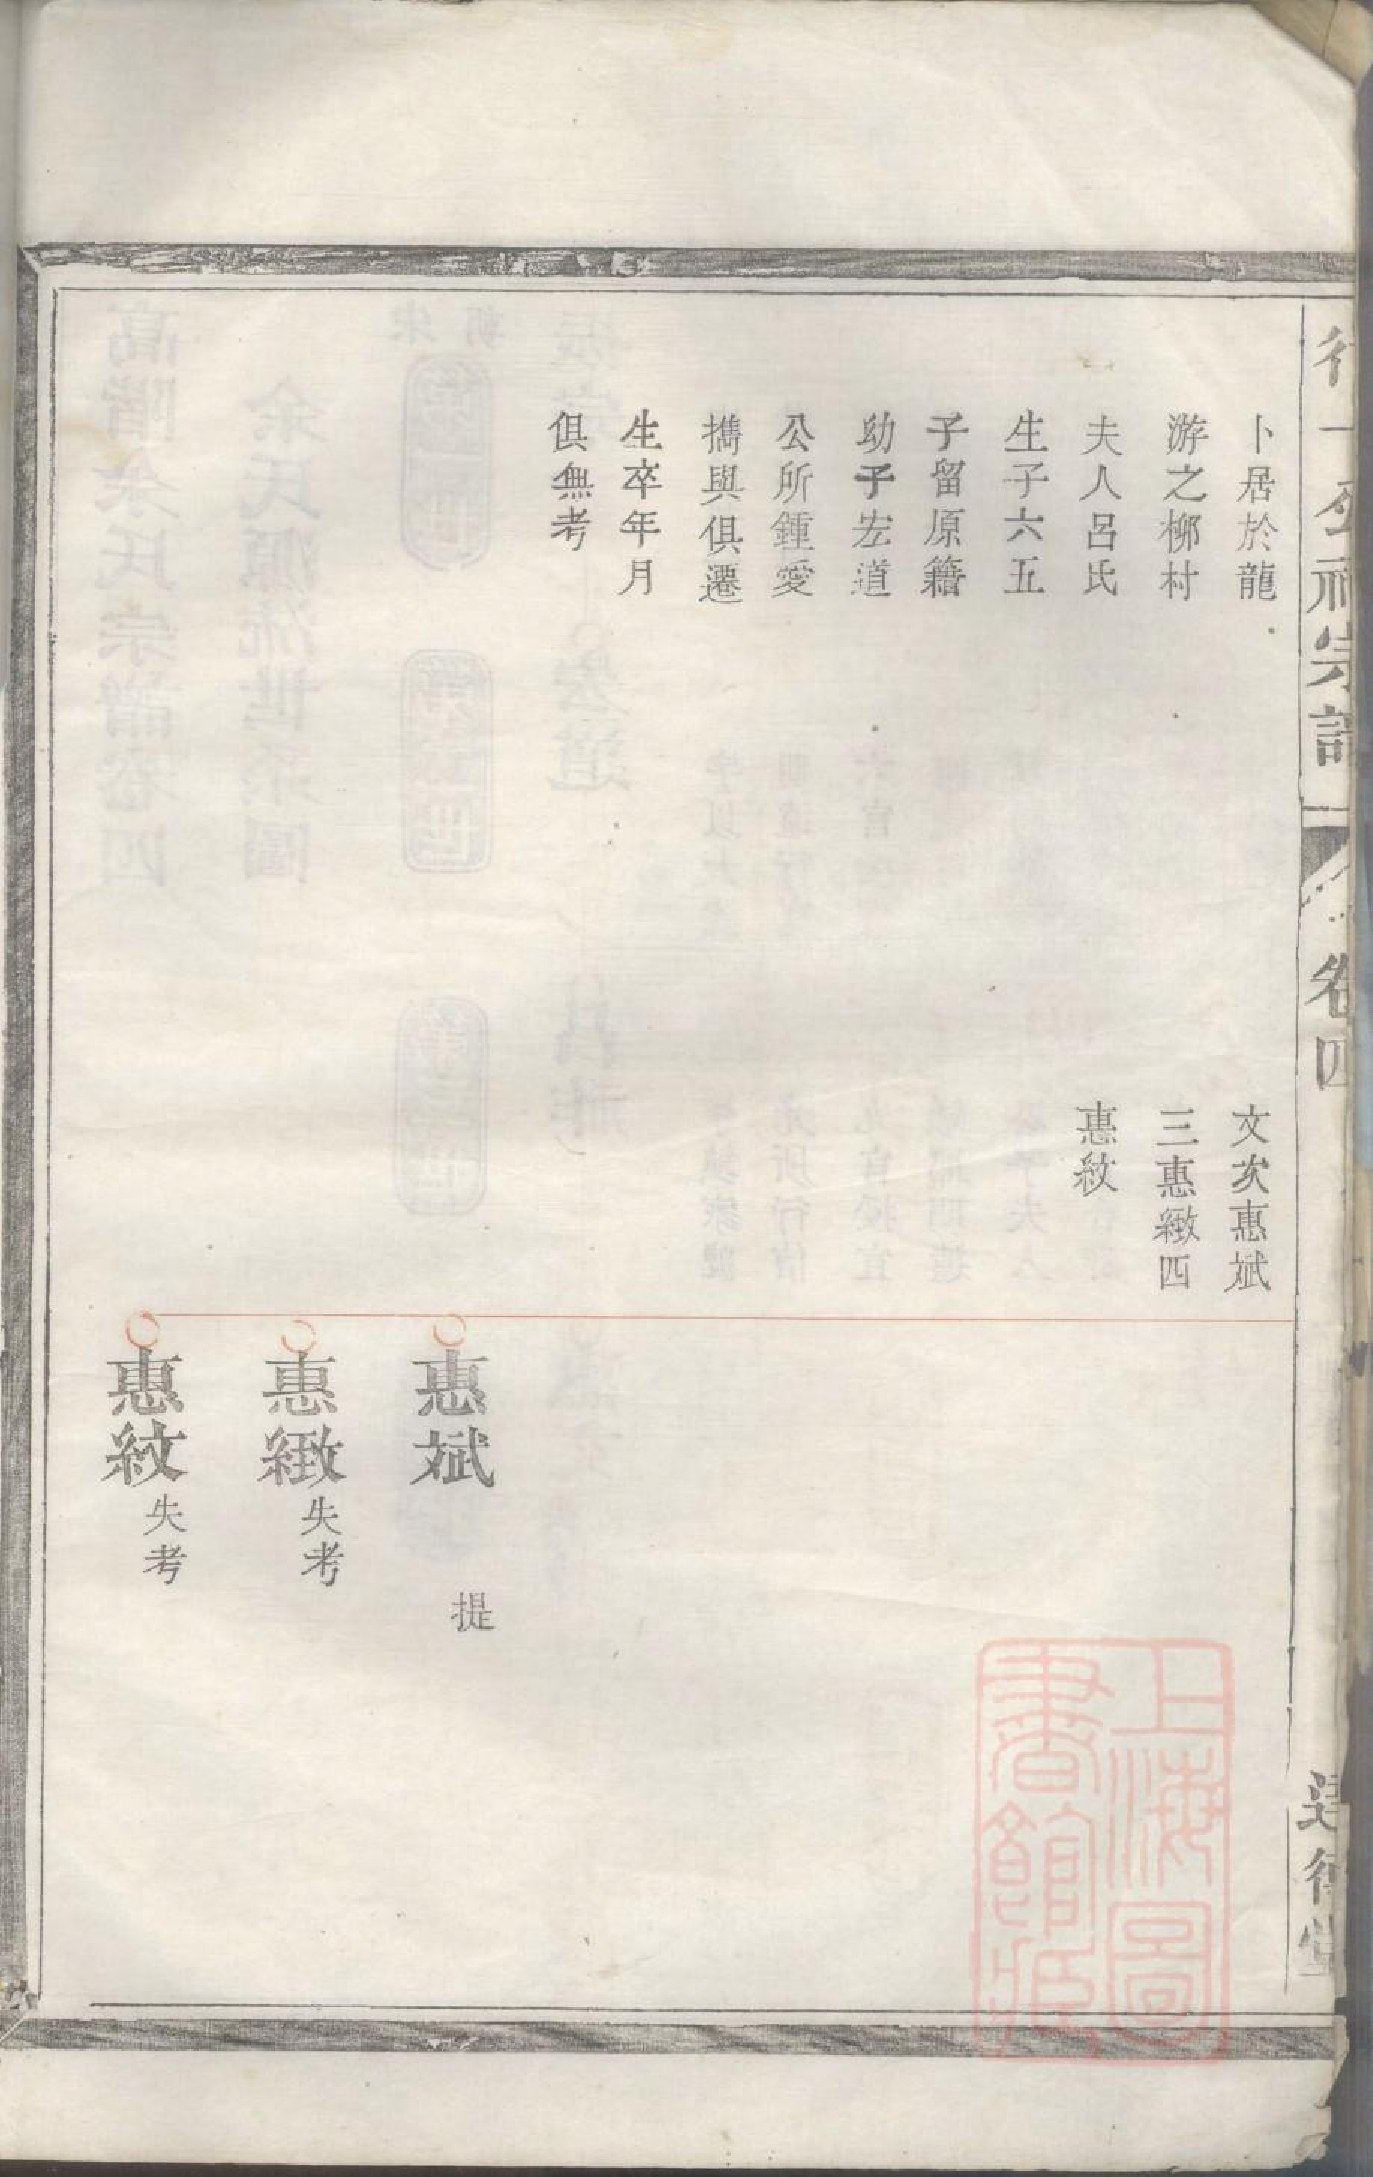 卜居於龍
游之柳村
夫人呂氏
生子六五
子留原籍
幼子宏道
公所鍾愛
攜與俱遷
生卒年月
俱無考
文次惠斌
三惠緻四
惠紋
惠斌
提
惠緻失考
惠紋失考
卷四
上海圖
書館藏